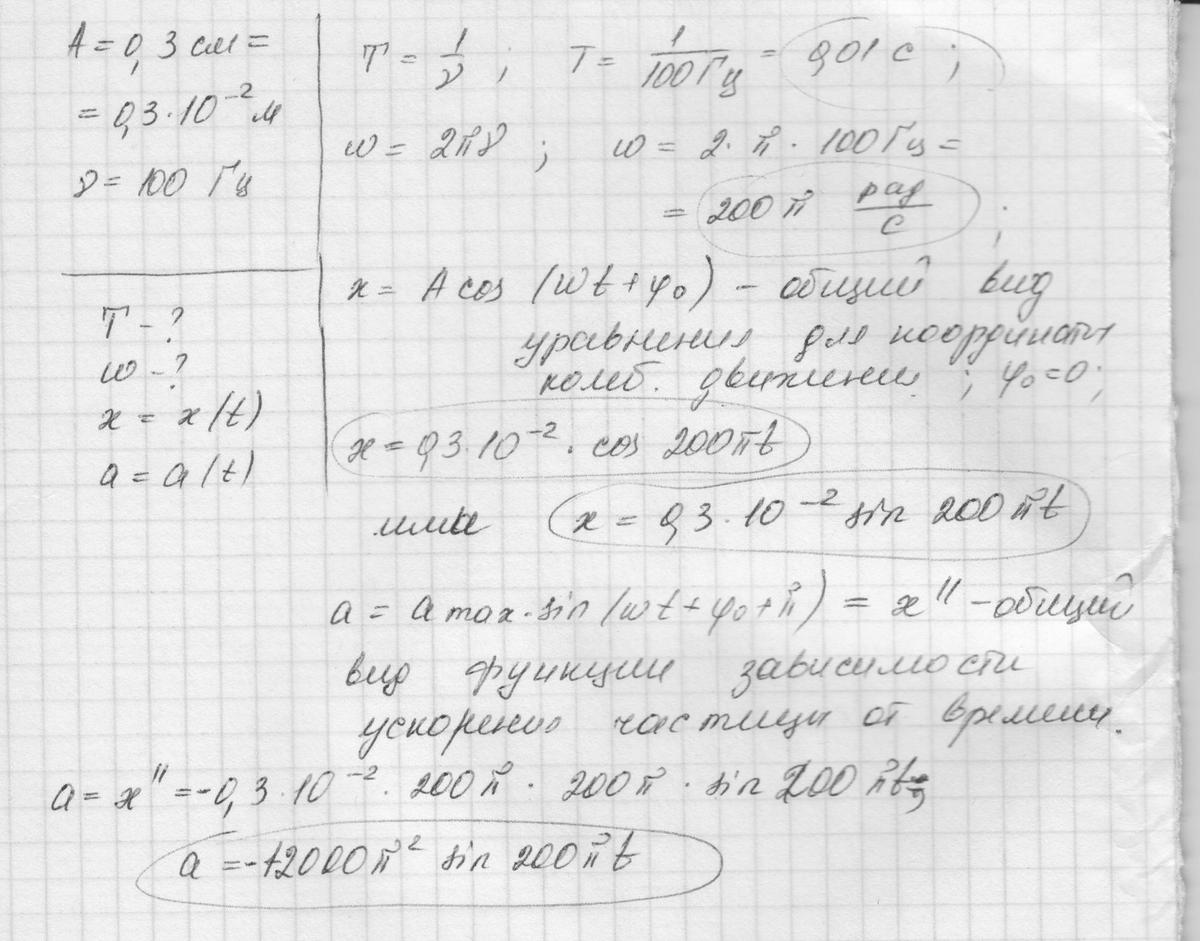 A = 0,3 см =
= 0,3·10⁻² м
ν = 100 Гц
T - ?
ω - ?
x = x(t)
a = a(t)
T = 1/ν ; T = 1/100Гц = 0,01 с ;
ω = 2πν ; ω = 2·π·100Гц =
= 200π рад/с ;
x = A cos (ωt + φ₀) - общий вид
уравнения для координаты
колеб. движения ; φ₀=0;
x = 0,3·10⁻²·cos 200πt
или x = 0,3·10⁻² sin 200πt
a = a max·sin(ωt + φ₀ + π) = x'' - общий
вид функции зависимости
ускорения частицы от времени.
a = x'' = -0,3·10⁻²·200π·200π·sin 200πt;
a = -12000π² sin 200πt